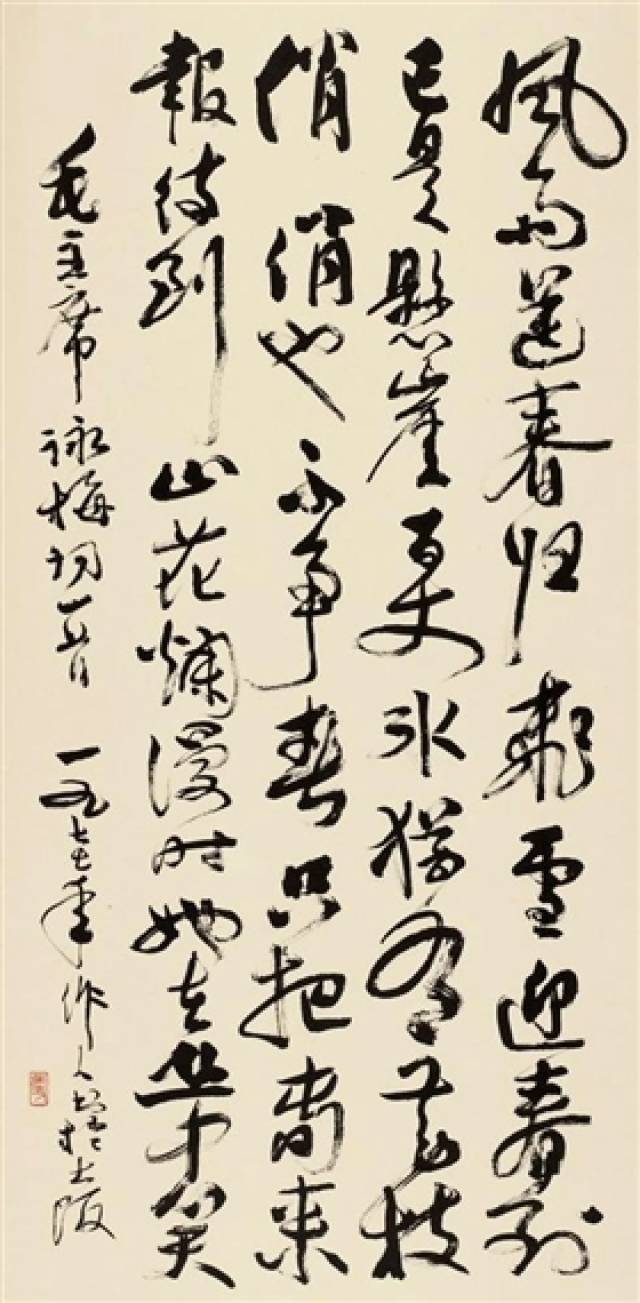 風雨送春归飛雪迎春到
已是懸崖百丈冰猶有花枝
俏俏也不争春只把春来
報待到山花爛漫时她在丛中笑
毛主席詠梅词一首 一九七七年作人